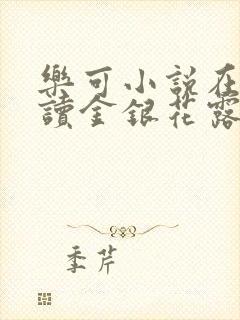 樂可小說在
讀金銀花露
季芹